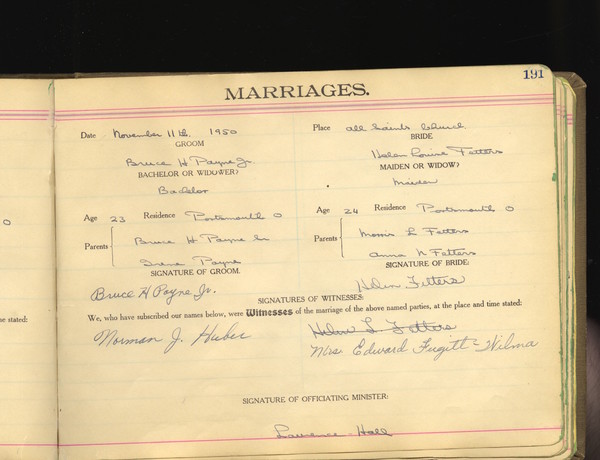 191
MARRIAGES.
Date November 11th 1950 Place All Saints Church
GROOM BRIDE
Bruce H Payne Jr. Helen Louise Fetters
BACHELOR OR WIDOWER? MAIDEN OR WIDOW?
Bachelor Maiden
Age 23 Residence Portsmouth O Age 24 Residence Portsmouth O
Parents Bruce H Payne Sr Parents Morris L Fetters
Irene Payne Anna N Fetters
SIGNATURE OF GROOM. SIGNATURE OF BRIDE:
Bruce H Payne Jr. Helen Fetters
SIGNATURES OF WITNESSES:
We, who have subscribed our names below, were Witnesses of the marriage of the above named parties, at the place and time stated:
Norman J. Huber Helen L. Fetters
Mrs. Edward Fugitt - Wilma
SIGNATURE OF OFFICIATING MINISTER:
Lawrence Hall
O
me stated: